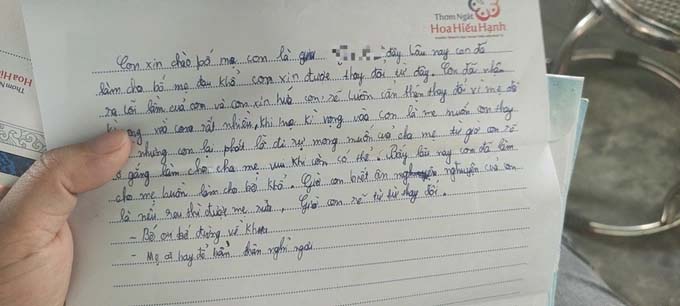 Thơm Ngát
Hoa Hiếu Hạnh
Con xin chào bố mẹ con là đây lâu nay con đã
làm cho bố mẹ đau khổ con xin được thay đổi từ đây. Con đã nhận
ra lỗi lầm của con và con xin hứa con sẽ luôn cần thận thay đổi vì mẹ đã
vào con rất nhiều, khi mẹ kì vọng vào con là mẹ muốn con thay
nhưng con lại phớt lờ đi sự mong muốn của cha mẹ từ giờ con sẽ
cố gắng làm cho cha mẹ vui khi còn có thể. lâu nay con đã làm
cho mẹ buồn làm cho bố khổ. Giờ con biết ăn của con
là nếu sau thì được mẹ sửa, Giờ con sẽ từ từ thay đổi.
- Bố ơi bố đừng về khuya
- Mẹ ơi hãy để bản thân nghỉ ngơi
Thơm N
Hoa Hi